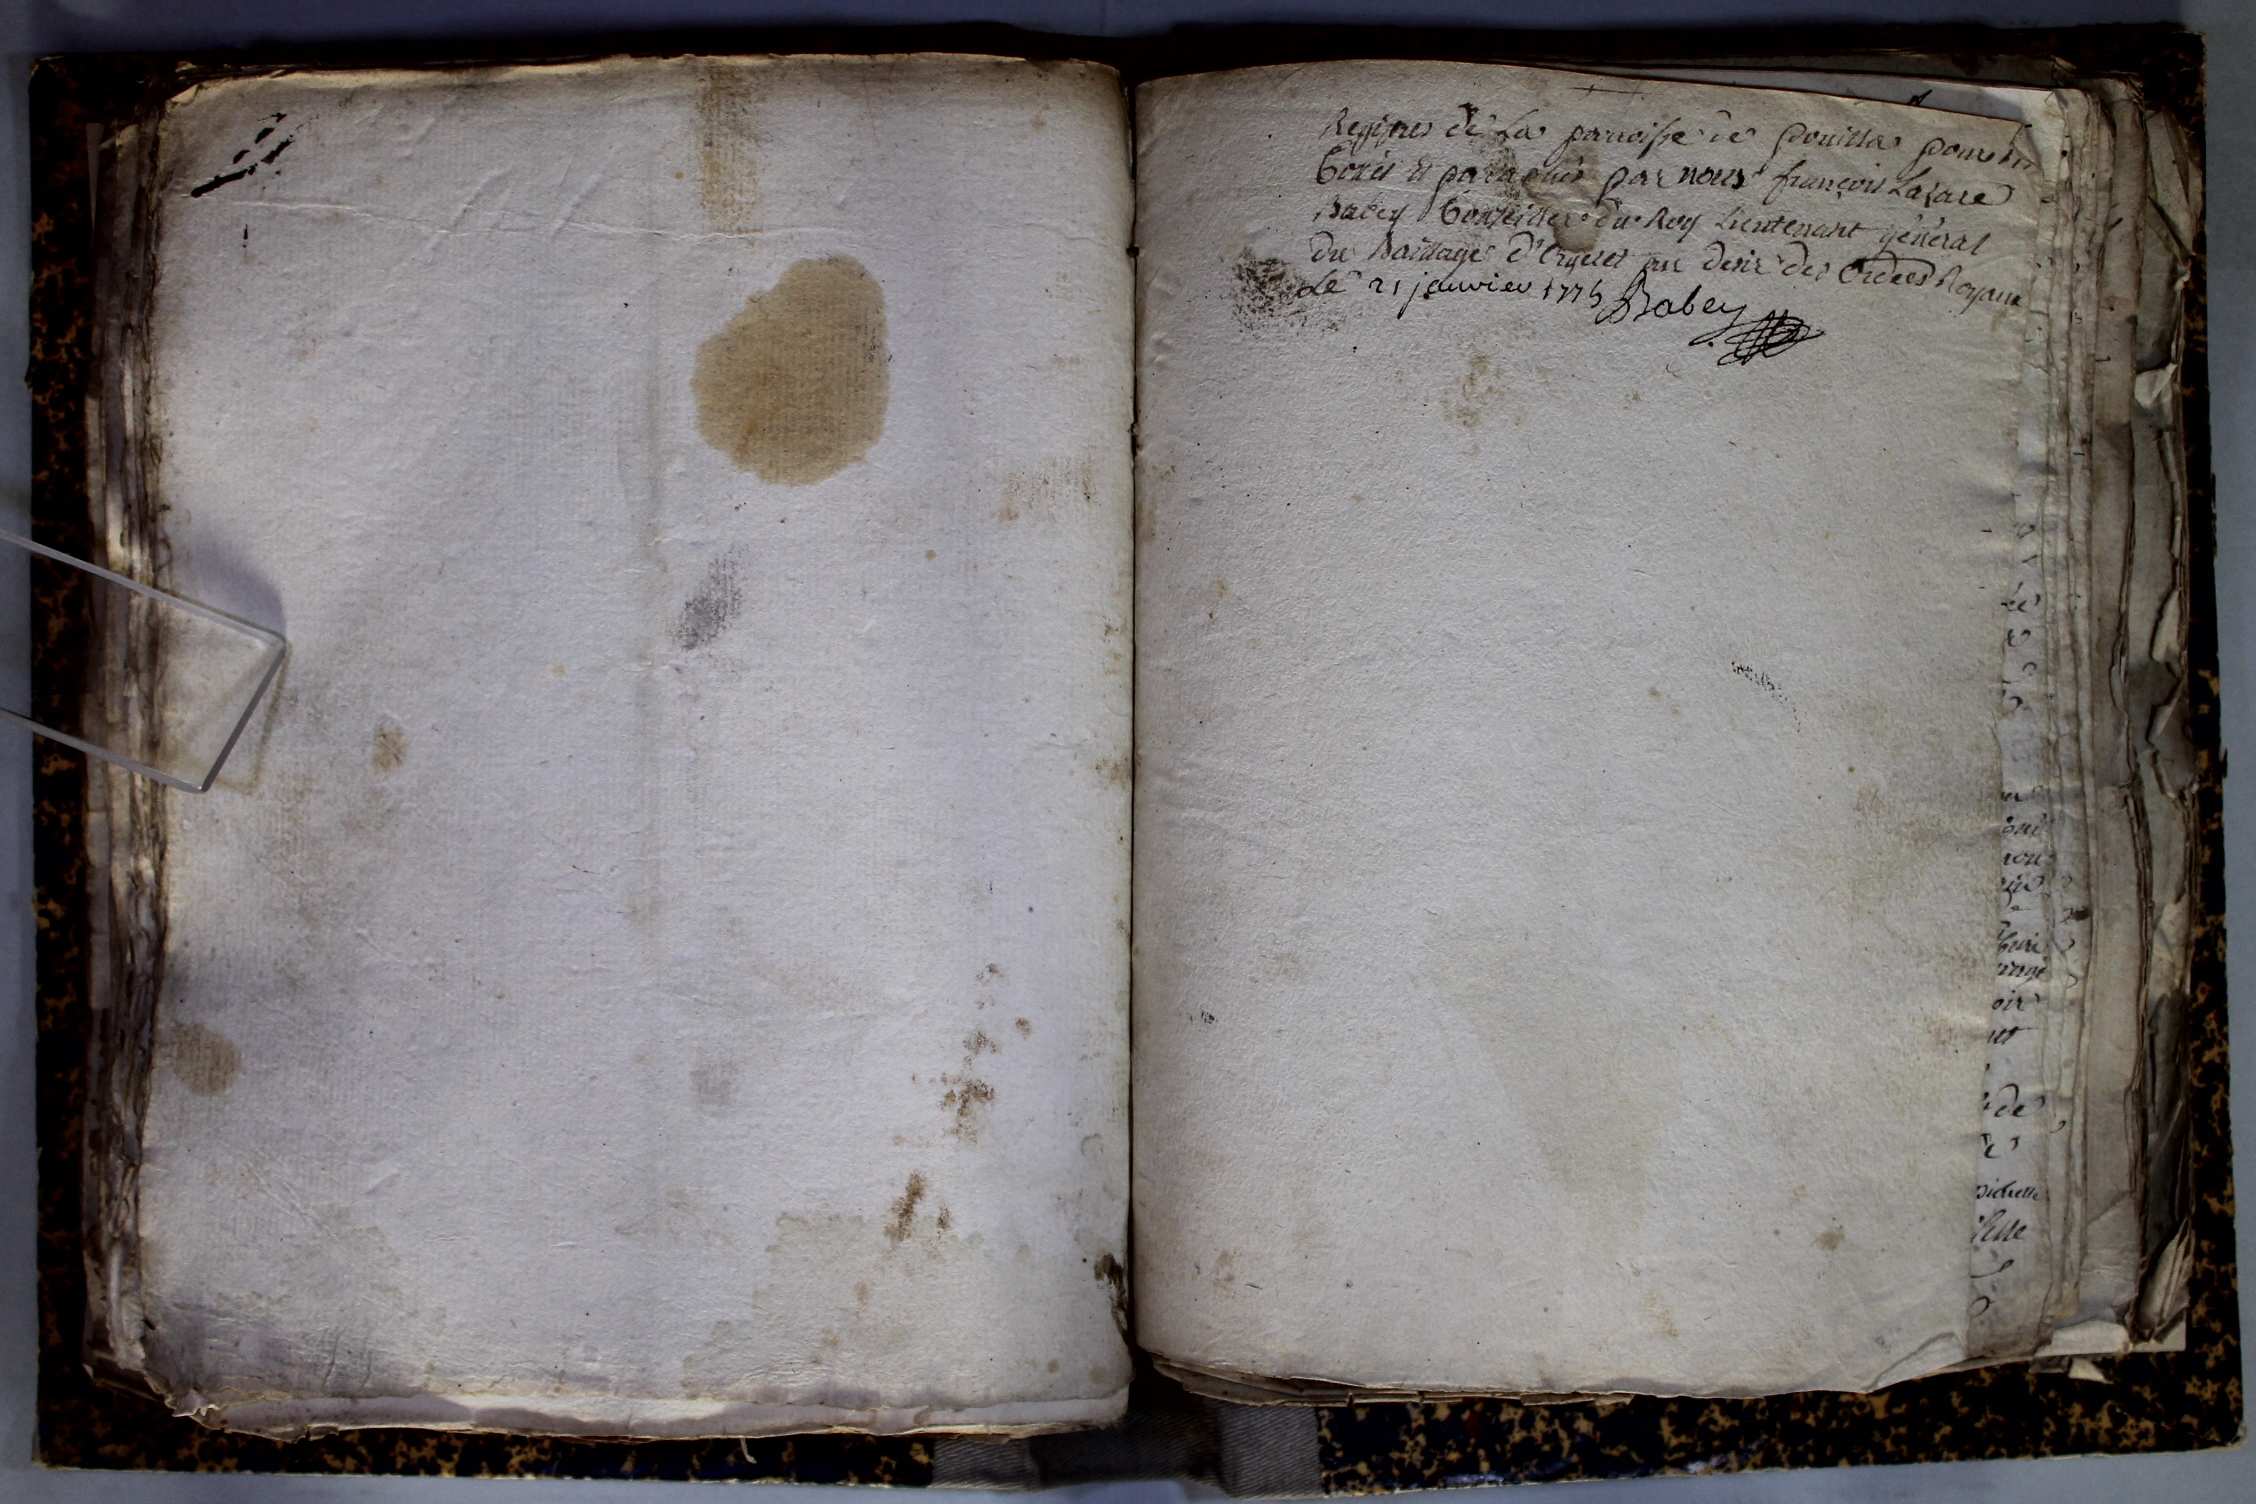 Registres de La parroisse de pouilla pour
Cottés et paraphés par nous françois Lazare
Babey Conseiller du Roy Lieutenant général
du Bailliage d'Orgelet au desir des Ordces Royaux
Le 21 janvier 1775 Babey